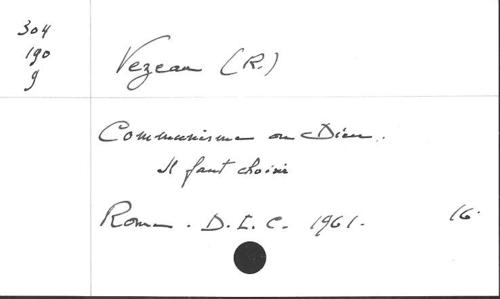 304
190
g
Vezeau (R.)
Communisme ou Dieu.
Il faut choisir
Rome. D.L.C. 1961. 16.